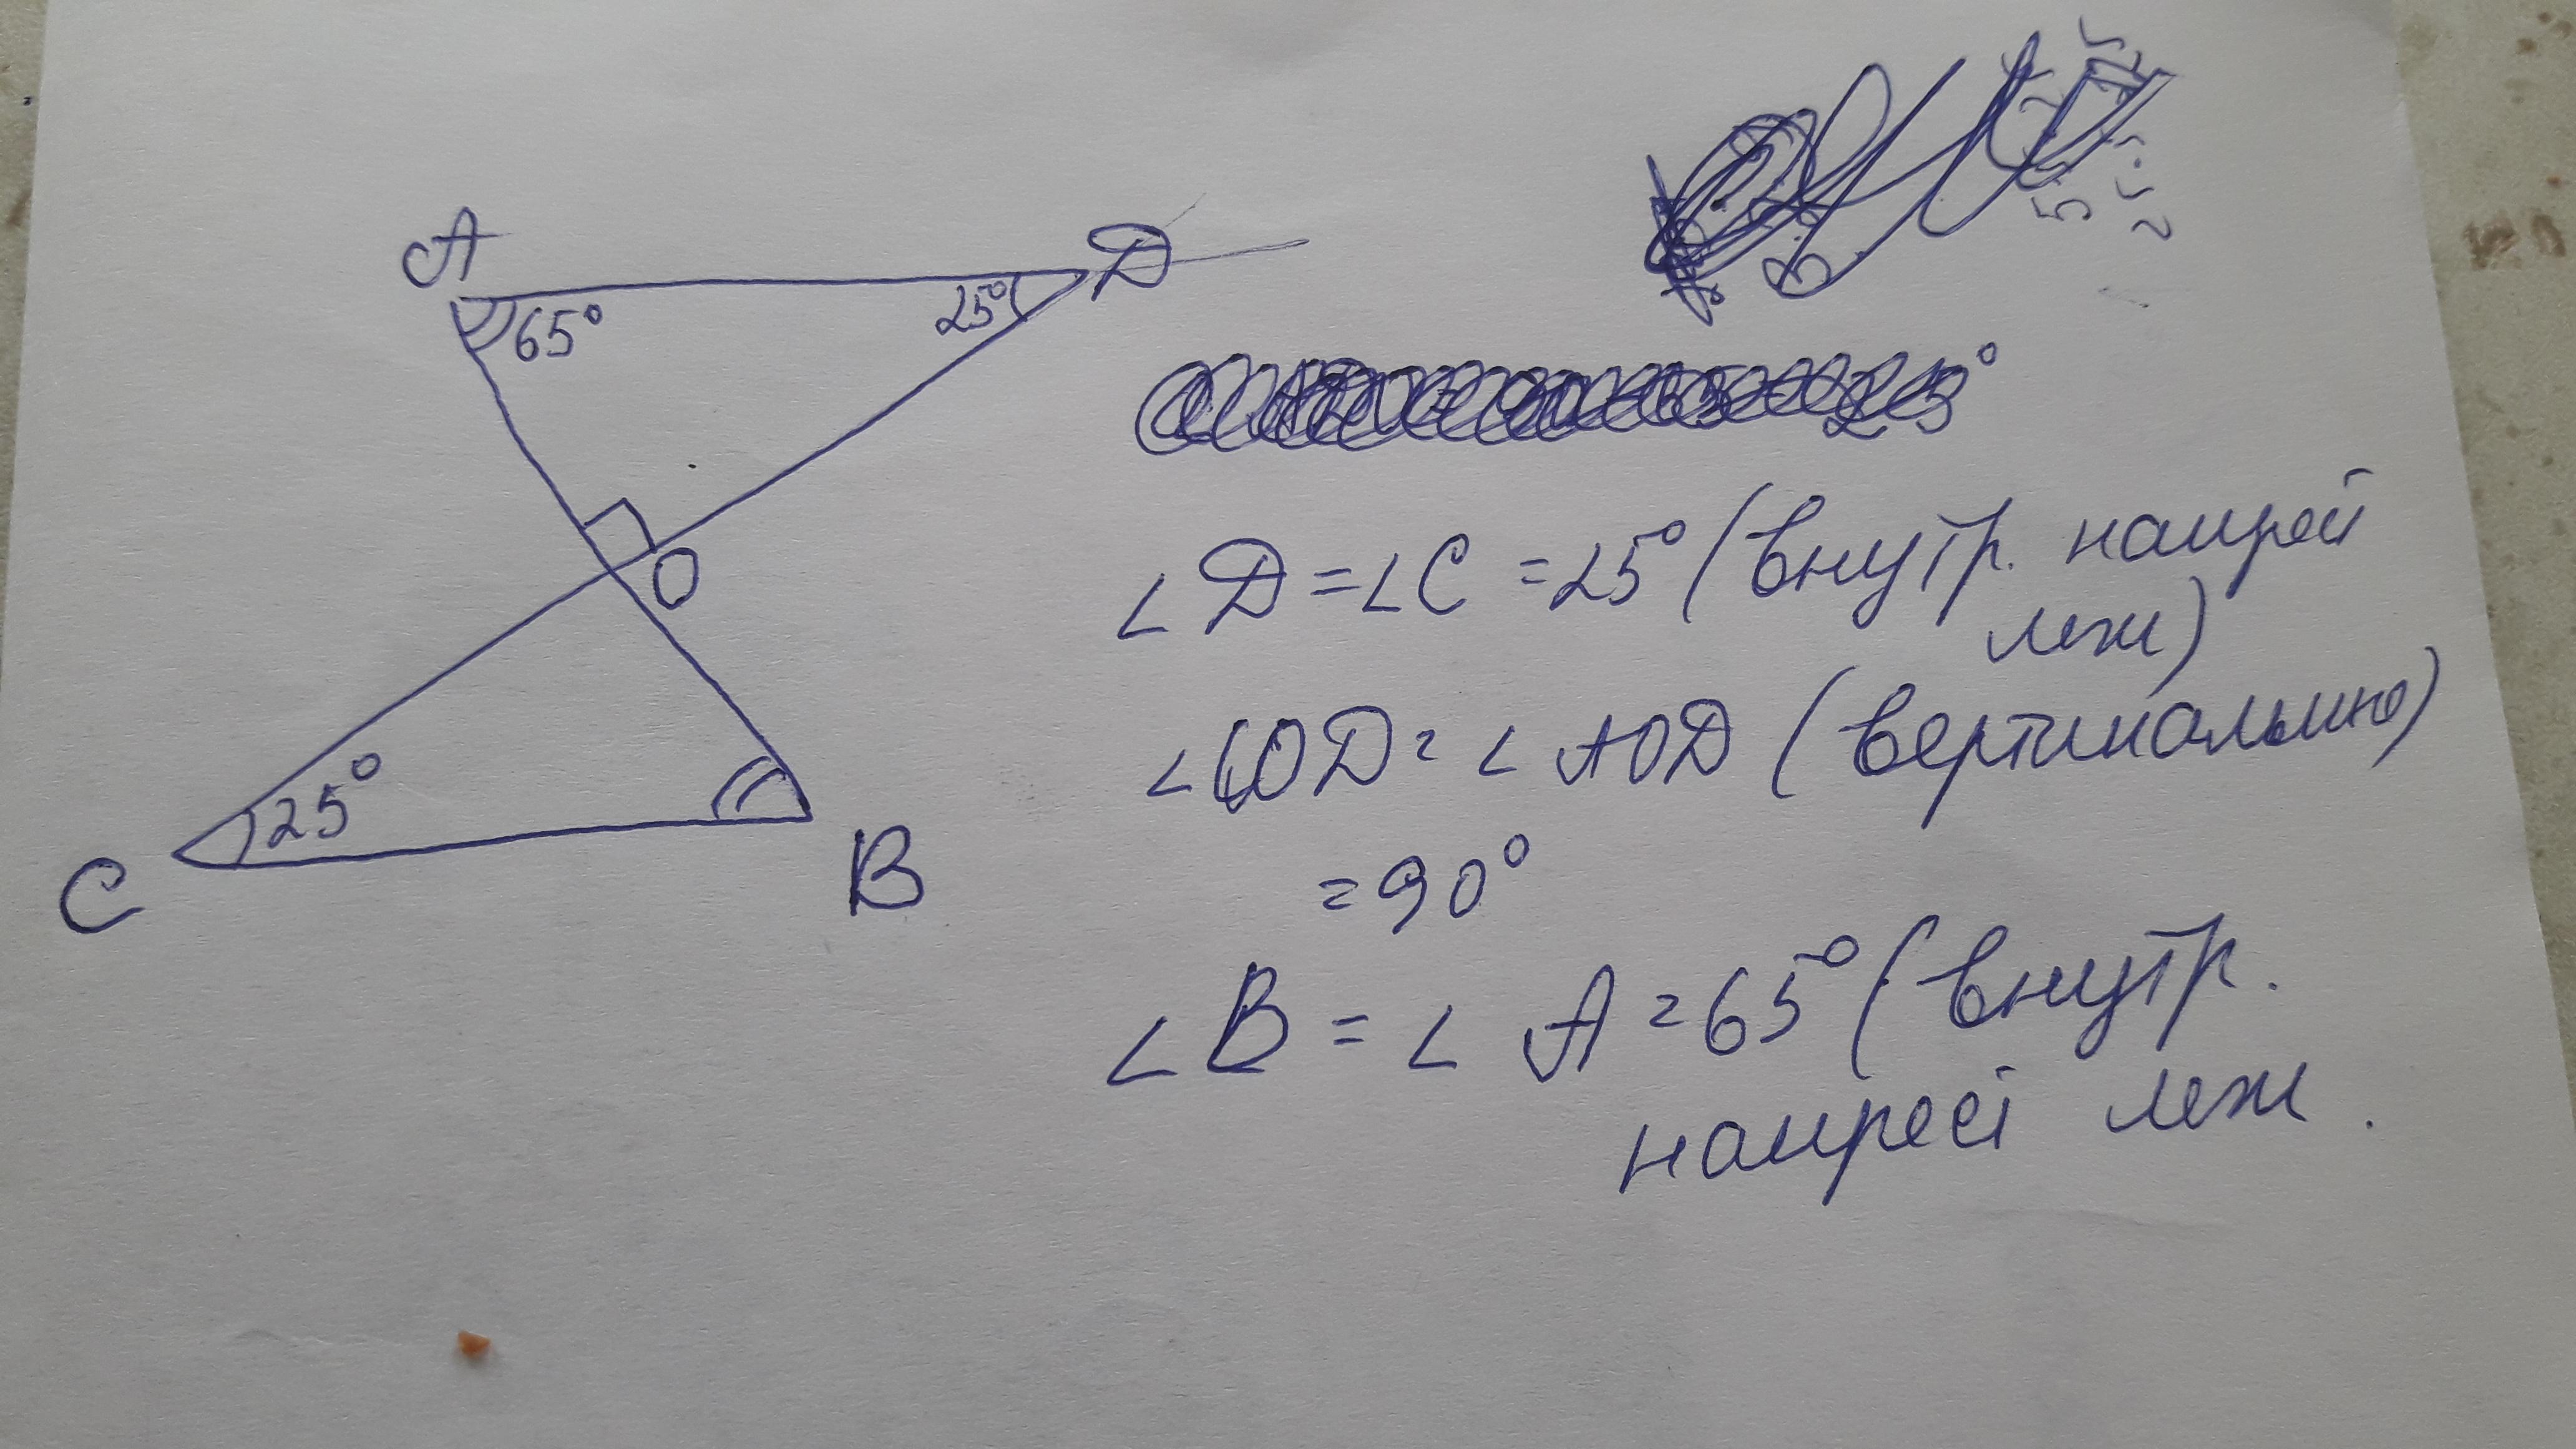 A
D
65°
25°
O
25°
C
B
∠D=∠C=25° (внутр. напрест
леж)
∠COD=∠AOD (вертикально)
=90°
∠B=∠A=65° (внутр.
напрест леж.